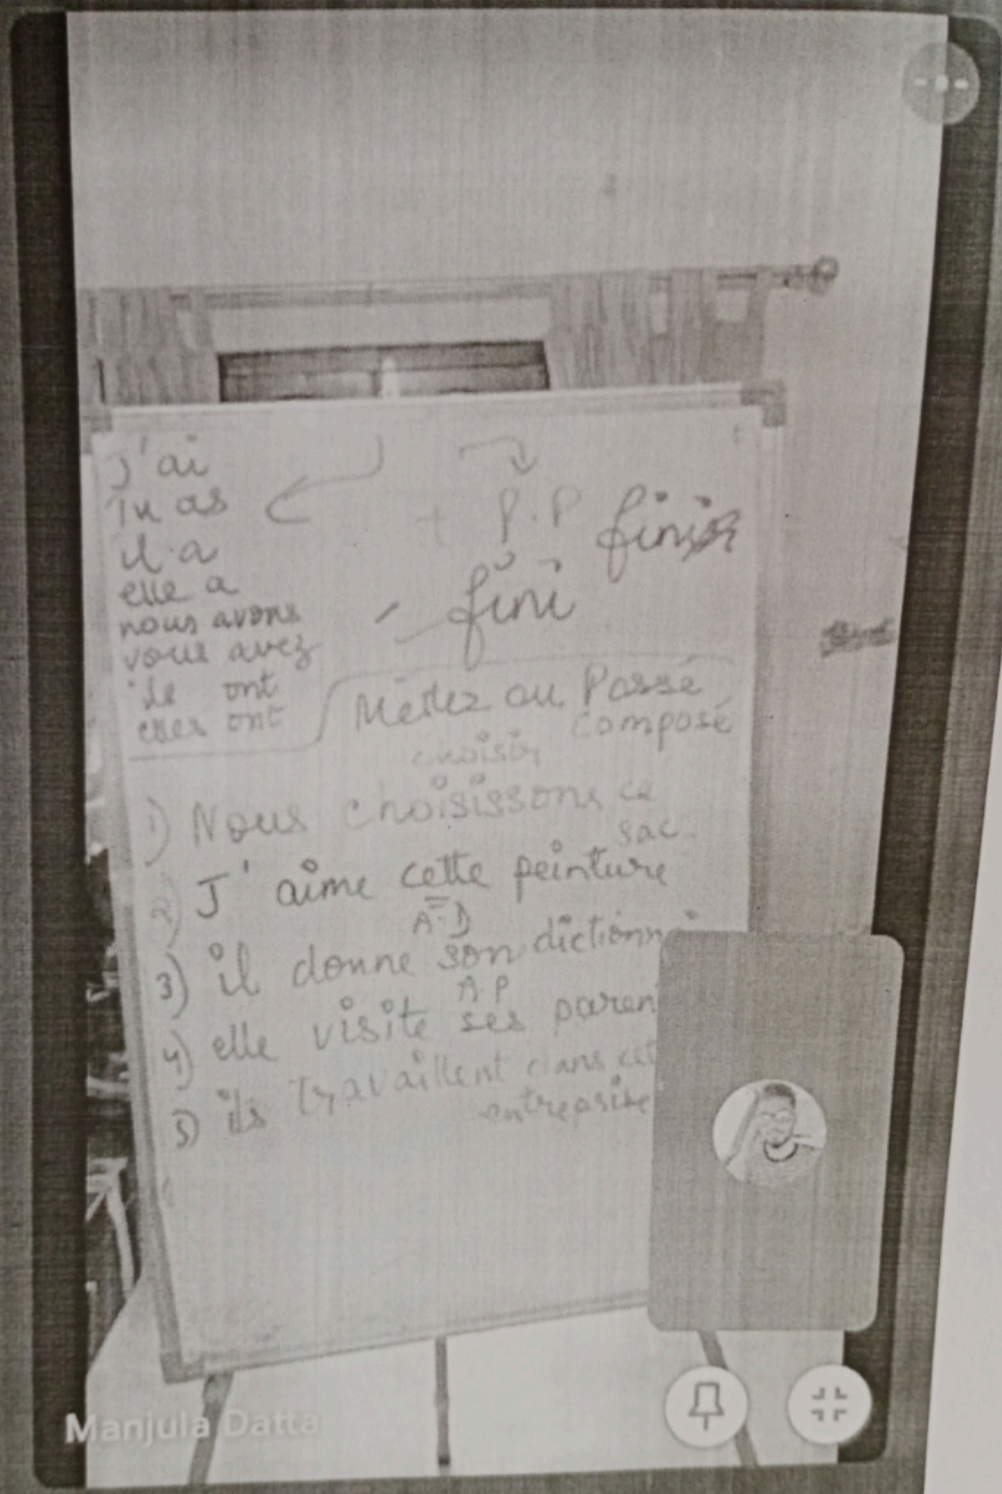 J'ai
Tu as
il a
elle a
nous avons
vous avez
ils ont
elles ont
+ P.P finir
fini
Mettez au Passé
composé
choisir
1) Nous choisissons ce
sac.
2) J'aime cette peinture
A.D
3) il donne son dictionn
A P
4) elle visite ses paren
5) ils travaillent dans cet
entreprise
Manjula Datta